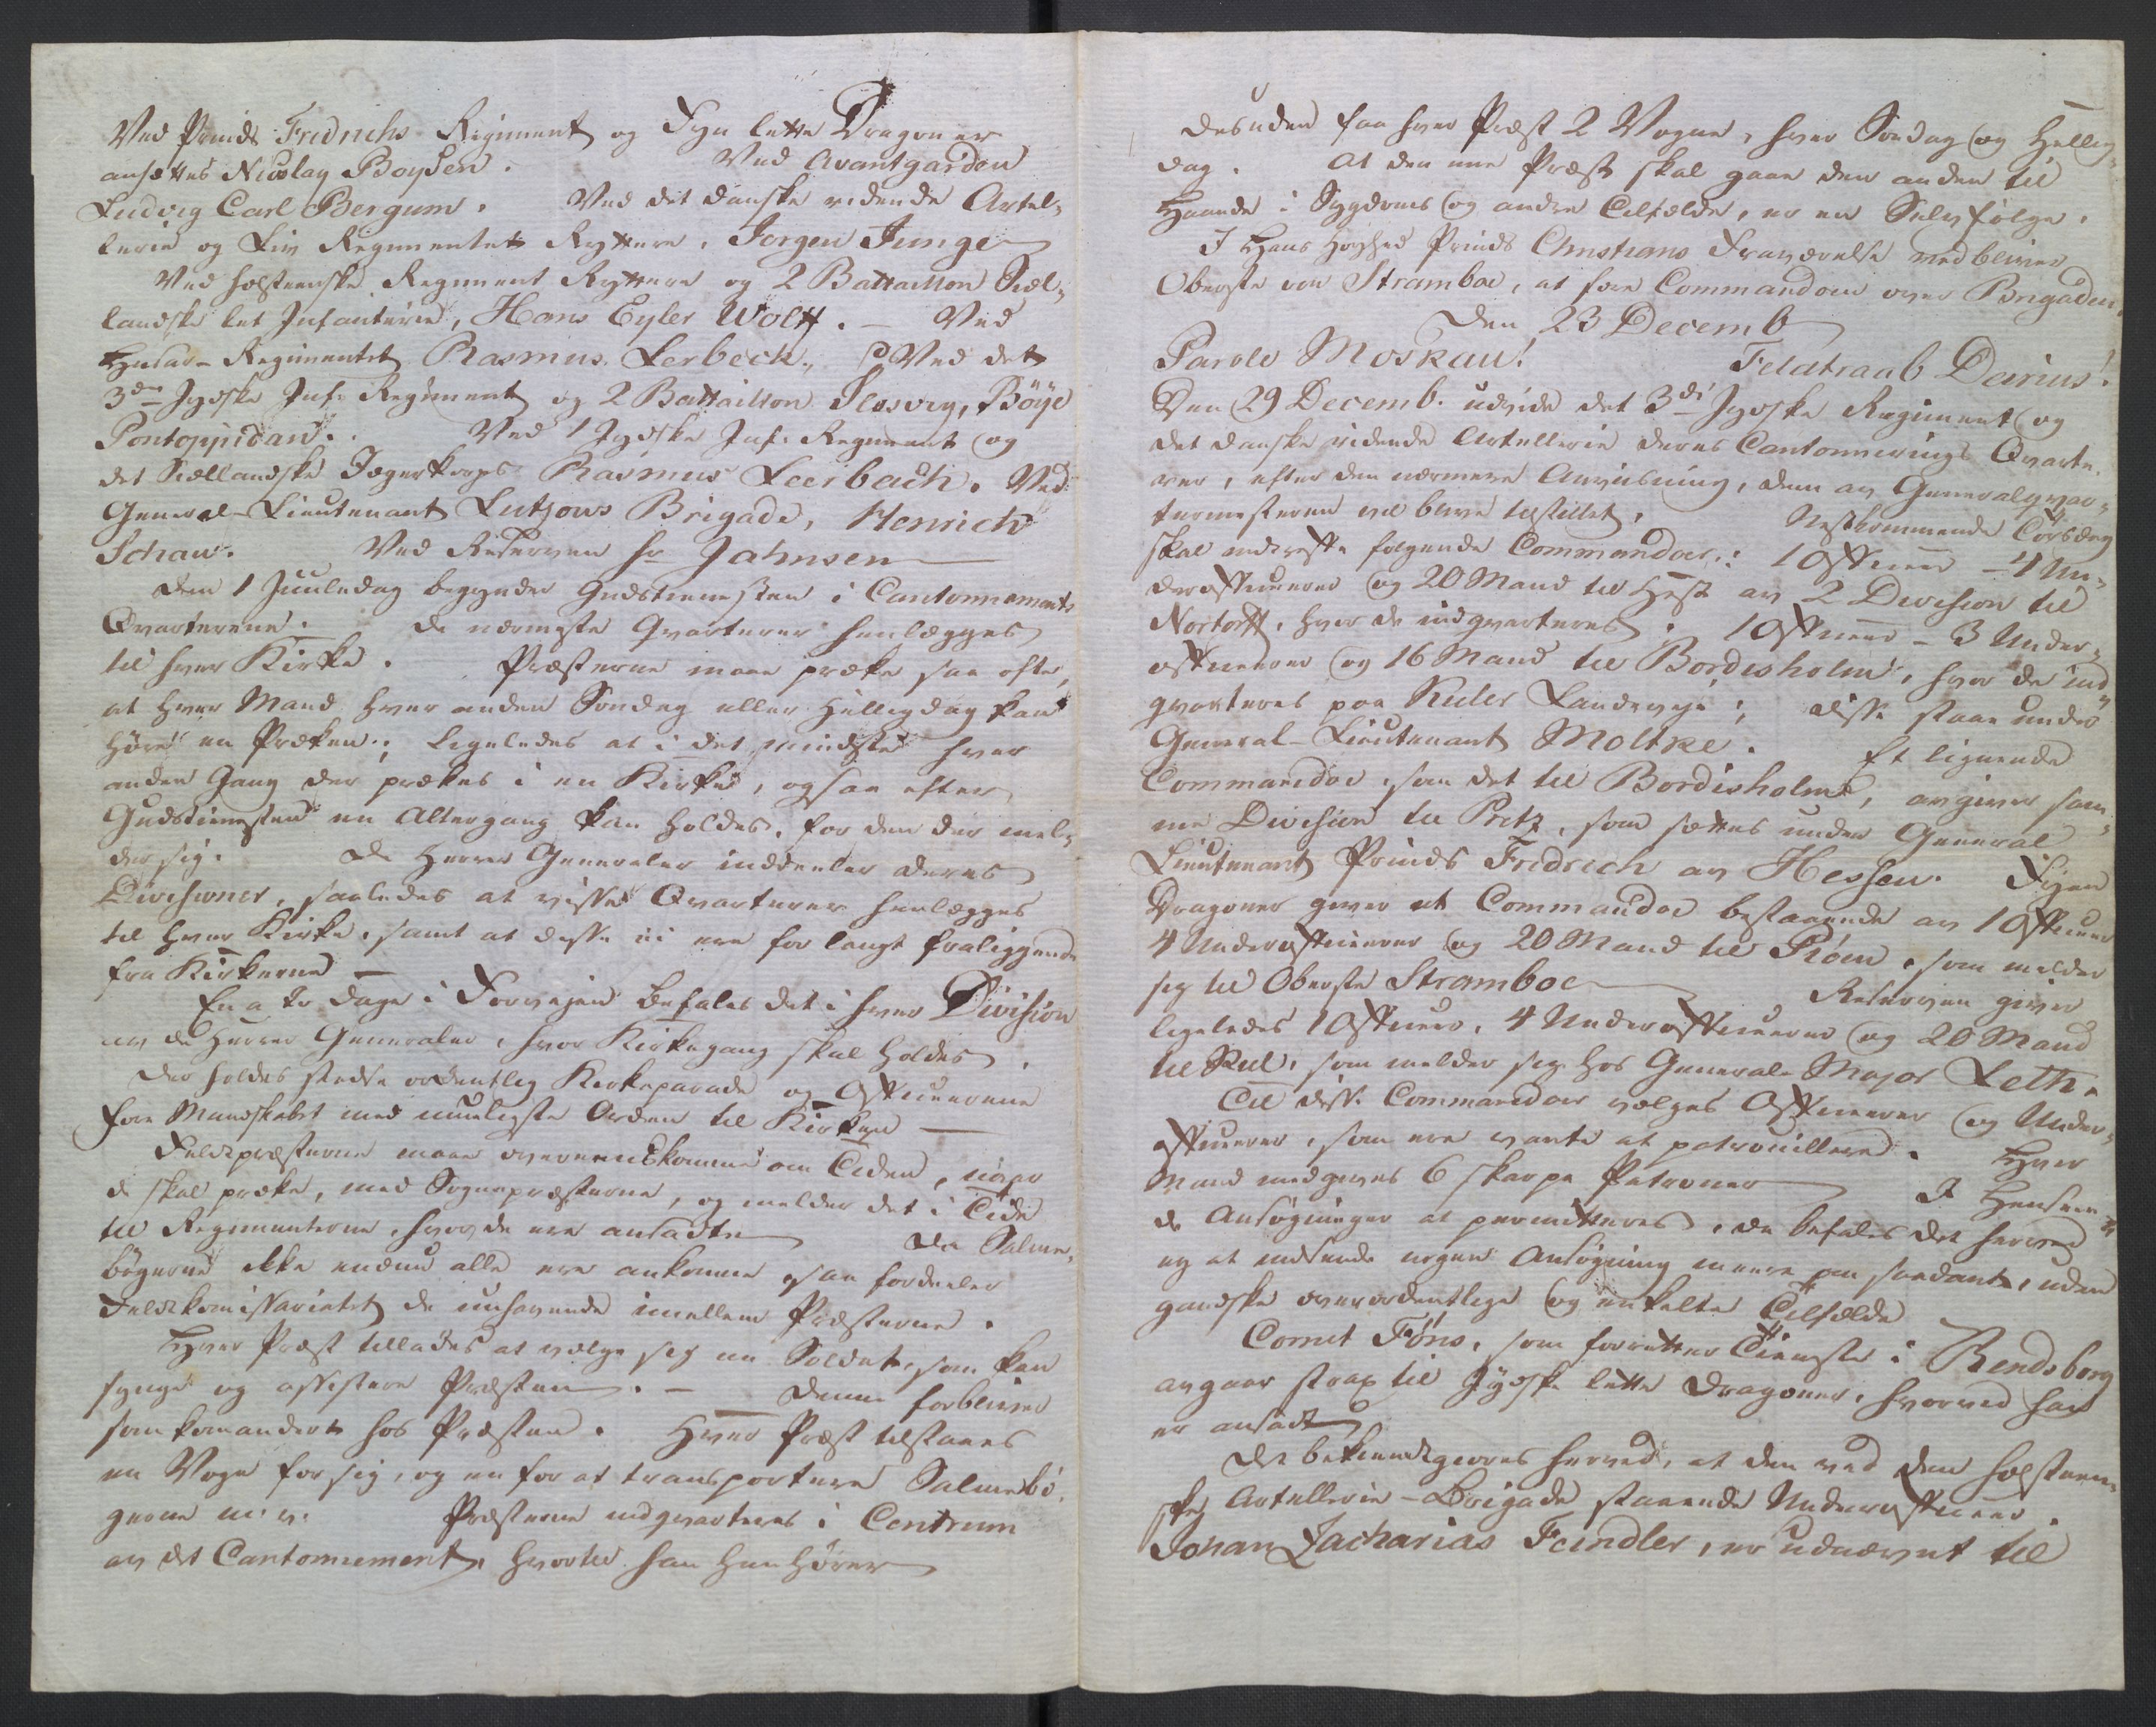 Ved Prinds Fridrichs Regiment og Fyn lette Dragoner
ansættes Nicolay Boysen. Ved Avantgarden
Ludvig Carl Bergum. Ved det danske ridende Artel-
lerie og Liv Regimentet Ryttere, Jorgen Junge
Ved holsteenske Regiment Ryttere og 2 Battaillon Siel-
landske let Infanterie, Hans Eyler Wolff. – Ved
Husar-Regimentet Rasmus Lerbeck. Ved det
3die Jydske Inf. Regiment og 2 Battaillon Slesvig, Böye
Pontoppidan. Ved 1 Jydske Inf. Regiment og
det Siellandske Jægerkorps Rasmus Leerbach. Ved
General-Lieutenant Lutzows Brigade, Henrich
Schau. Ved Reserven Hr Jahnsen
Den 1 Juuledag begynder Gudstienesten i Cantonnements
Qvartererne. De nærmeste Qvarterer henlægges
til hver Kirke. Præsterne maae præke saa ofte,
at hver Mand hver anden Søndag eller Helligdag kan
høre en Præken; ligeledes at i det mindste hver
anden Gang der prækes i en Kirke, ogsaa efter
Gudstienesten en Altergang kan holdes, for dem der mel-
der sig. De Herrer Generaler inddeeler deres
Divisioner, saaledes at visse Qvarterer henlægges
til hver Kirke, samt at disse ei ere for langt fraliggende
fra Kirkerne –
En a to Dage i Forvejen befales det i hver Division
av de Herrer Generaler, hvor Kirkegang skal holdes.
Der holdes stedse ordentlig Kirkeparade og Officererne
føre Mandskabet med muligste Orden til Kirken
Feldtpræsterne maae overeenskomme om Tiden, naar
de skal præke, med Sognepræsterne, og melder det i Tide
til Regimenterne, hvor de ere ansadte Da Salme-
bøgerne ikke endnu alle ere ankomne, saa fordeeler
Feldtkomissariatet de unhavende imellem Præsterne.
Hver Præst tillades at vælge sig en Soldat, som kan
synge og assistere Præsten. – Denne forbliver
som komandert hos Præsten. Hver Præst tilstaaes
en Vogn for sig, og en for at transportere Salmebø-
gerne m: v: Præsterne indqvarteres i Centrum
av det Cantonnement, hvortil han henhører
desuden faa hver Præst 2 Vogne, hver Søndag og Hellig-
dag. At den ene Præst skal gaae den anden til
Haande i Sygdoms og andre Tilfælde, er en Selvfølge.
I Hans Høyhed Prinds Christians Fraværelse vedbliver
Oberste von Stramboe, at føre Commandoen over Brigaden.
Den 23 Decemb
Parole Moskau! Feldtraab Deirius!
Den 29 Decemb. udvide det 3die Jydske Regiment og
det danske ridende Artellerie deres Cantonnerings Qvarte-
rer, efter den nærmere Anvisning, dem av Generalqvar-
termesteren vil blive tilstillet. Nestkommende Torsdag
skal indtreffe følgende Commandoer: 1 Officeer – 4 Un-
derofficerer og 20 Mand til Hest av 2 Division til
Nortorff, hvor de indqvarteres. 1 Officeer – 3 Under-
officeerer og 16 Mand til Bordisholm, hvor de ind-
qvarteres paa Kieler Landeveje; disse staae under
General-Lieutenant Moltke. Et lignende
Commandoe, som det til Bordisholm, avgiver sam-
me Division til Pretz, som sættes under General
Lieutenant Prinds Fridrich av Hessen. Fyen
Dragoner giver et Commandoe bestaaende av 1 Officeer
4 Underofficerer og 20 Mand til Pløen, som melder
sig til Oberste Stramboe Reserven giver
ligeledes 1 Officeer, 4 Underofficeerer og 20 Mand
til Kiel, som melder sig hos General-Major Leth.
Til disse Commandoer vælges Officeerer og Under-
officeerer, som ere vante at patrouillere. Hver
Mand medgives 6 skarpe Patroner I Henseen-
de Ansøgninger at permitteres, da befales det herved
ey at indsende nogen Ansøgning meere om saadant, uden
gandske overordentlige og enkelte Tilfælde
Cornet Föns, som forretter Tieneste i Rendsborg
avgaar strax til Jydske lette Dragoner, hvorved han
er ansadt
Det bekiendtgiøres herved, at den ved den holsteen-
ske Artellerie-Brigade staaende Underofficeer
Johan Zacharias Feindler, er udnævnt til